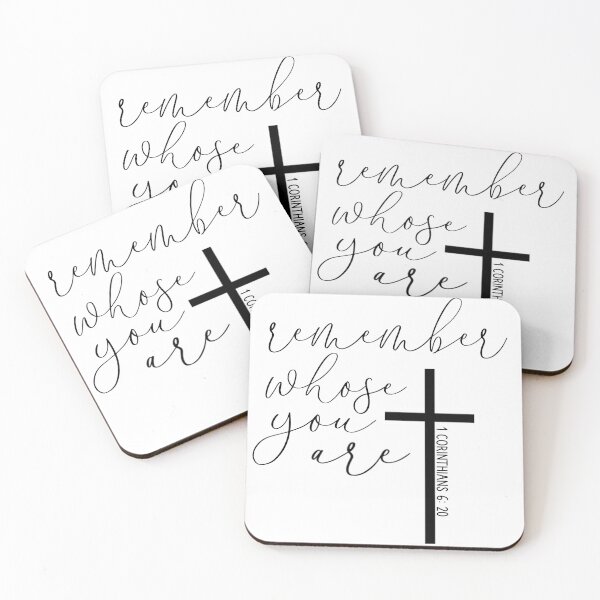 remember
whose
yo
1 CORINTHIANS
remember
whose
you
are
1 CORINTH
remember
whose
you
are
1 CO
remember
whose
you
are
1 CORINTHIANS 6: 20